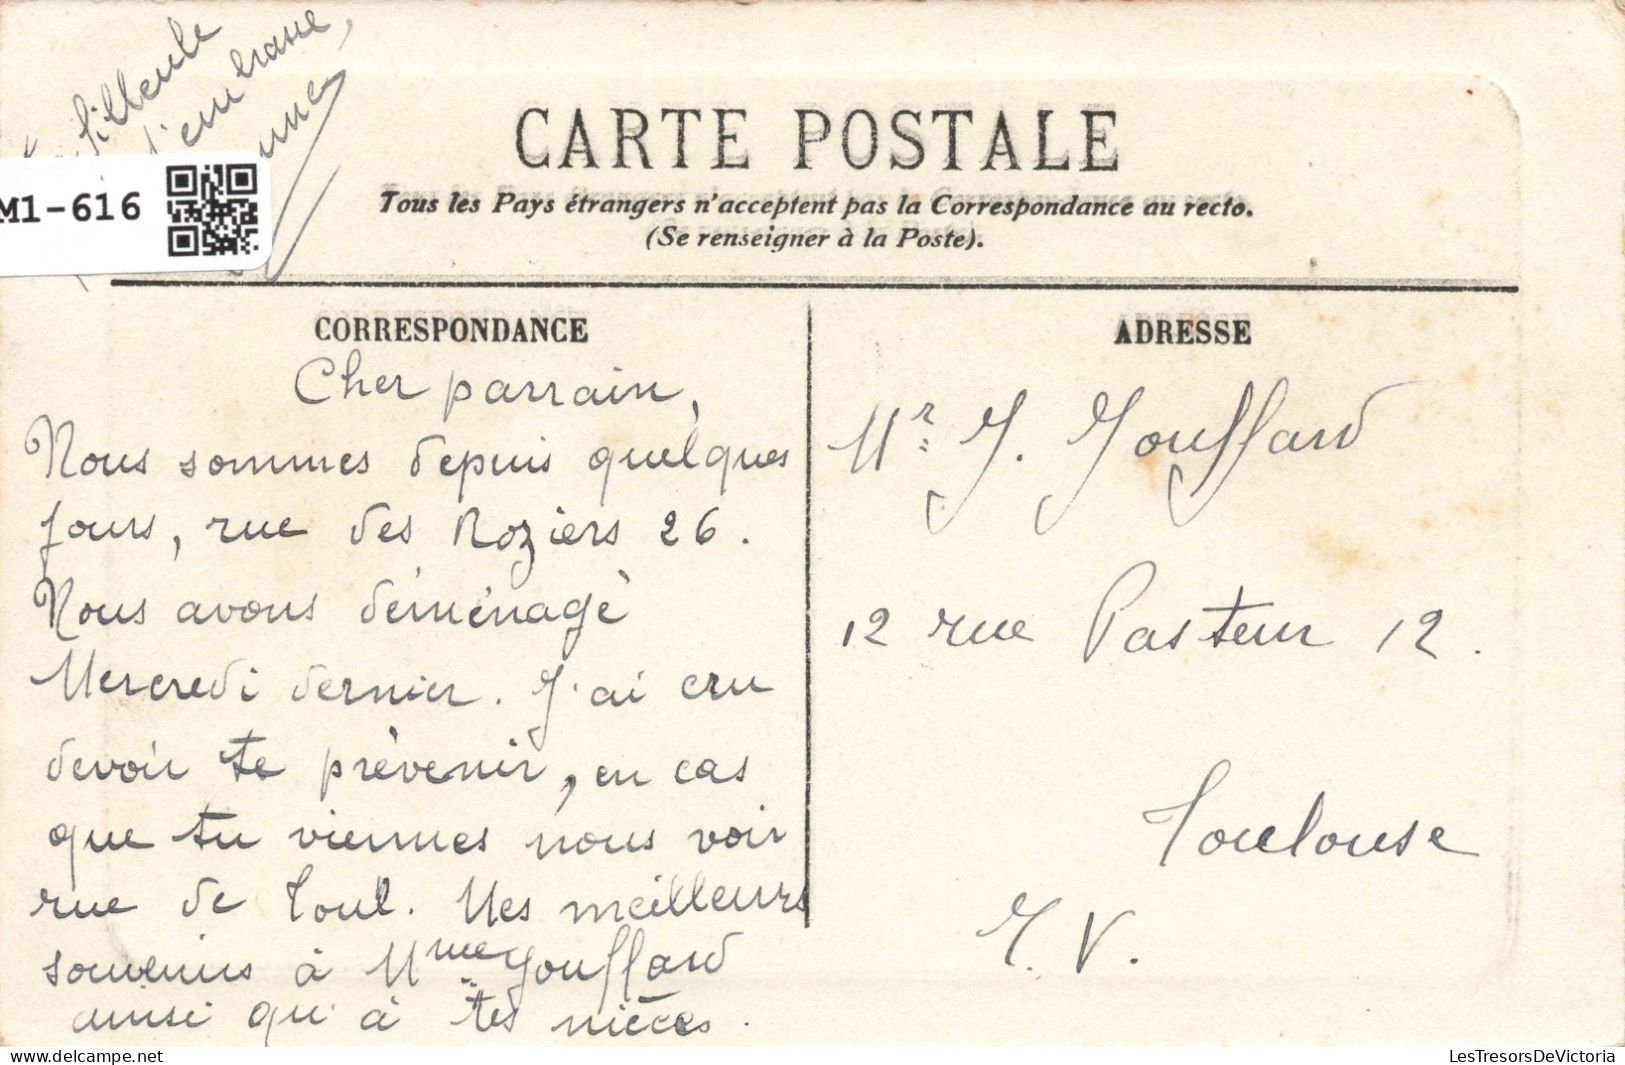 CARTE POSTALE
Tous les Pays étrangers n'acceptent pas la Correspondance au recto.
(Se renseigner à la Poste).
CORRESPONDANCE
Cher parrain,
Nous sommes depuis quelques
jours, rue des Roziers 26.
Nous avons déménagé
Mercredi dernier. J'ai cru
devoir te prévenir, en cas
que tu viennes nous voir
rue de Toul. Mes meilleurs
souvenirs à Mme Jouffard
ainsi qu'à tes nièces.
filleule
t'embrasse,
ADRESSE
Mr J. Jouffard
12 rue Pasteur 12.
Toulouse
T. V.
M1-616
LesTresorsDeVictoria
delcampe.net